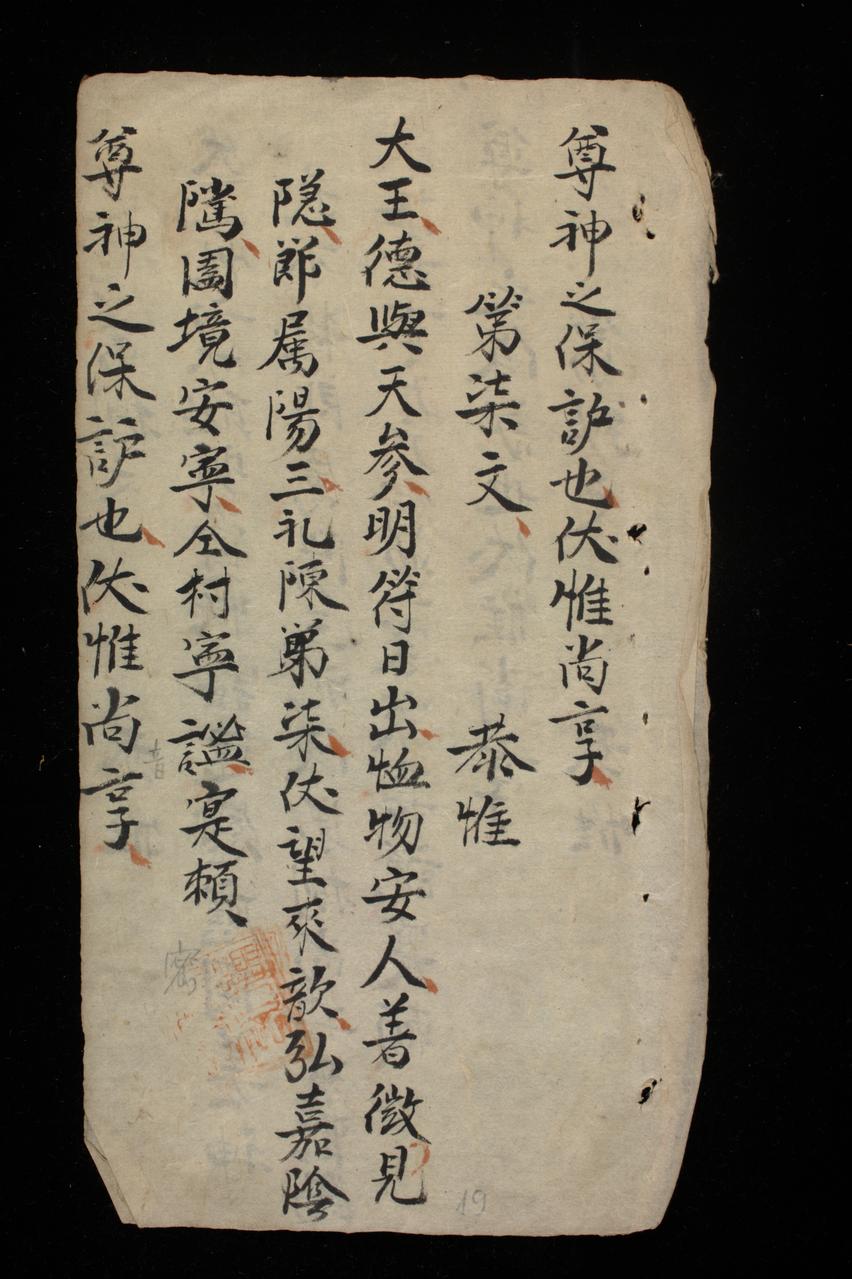 尊神之保護也伏惟尚享
第柒文 恭惟
大王德與天參明符日出恤物安人著徵見
隱節属陽三礼陳第柒伏望來歆弘嘉陰
隲圍境安寧仝村寧謐寔頼
尊神之保護也伏惟尚享
19